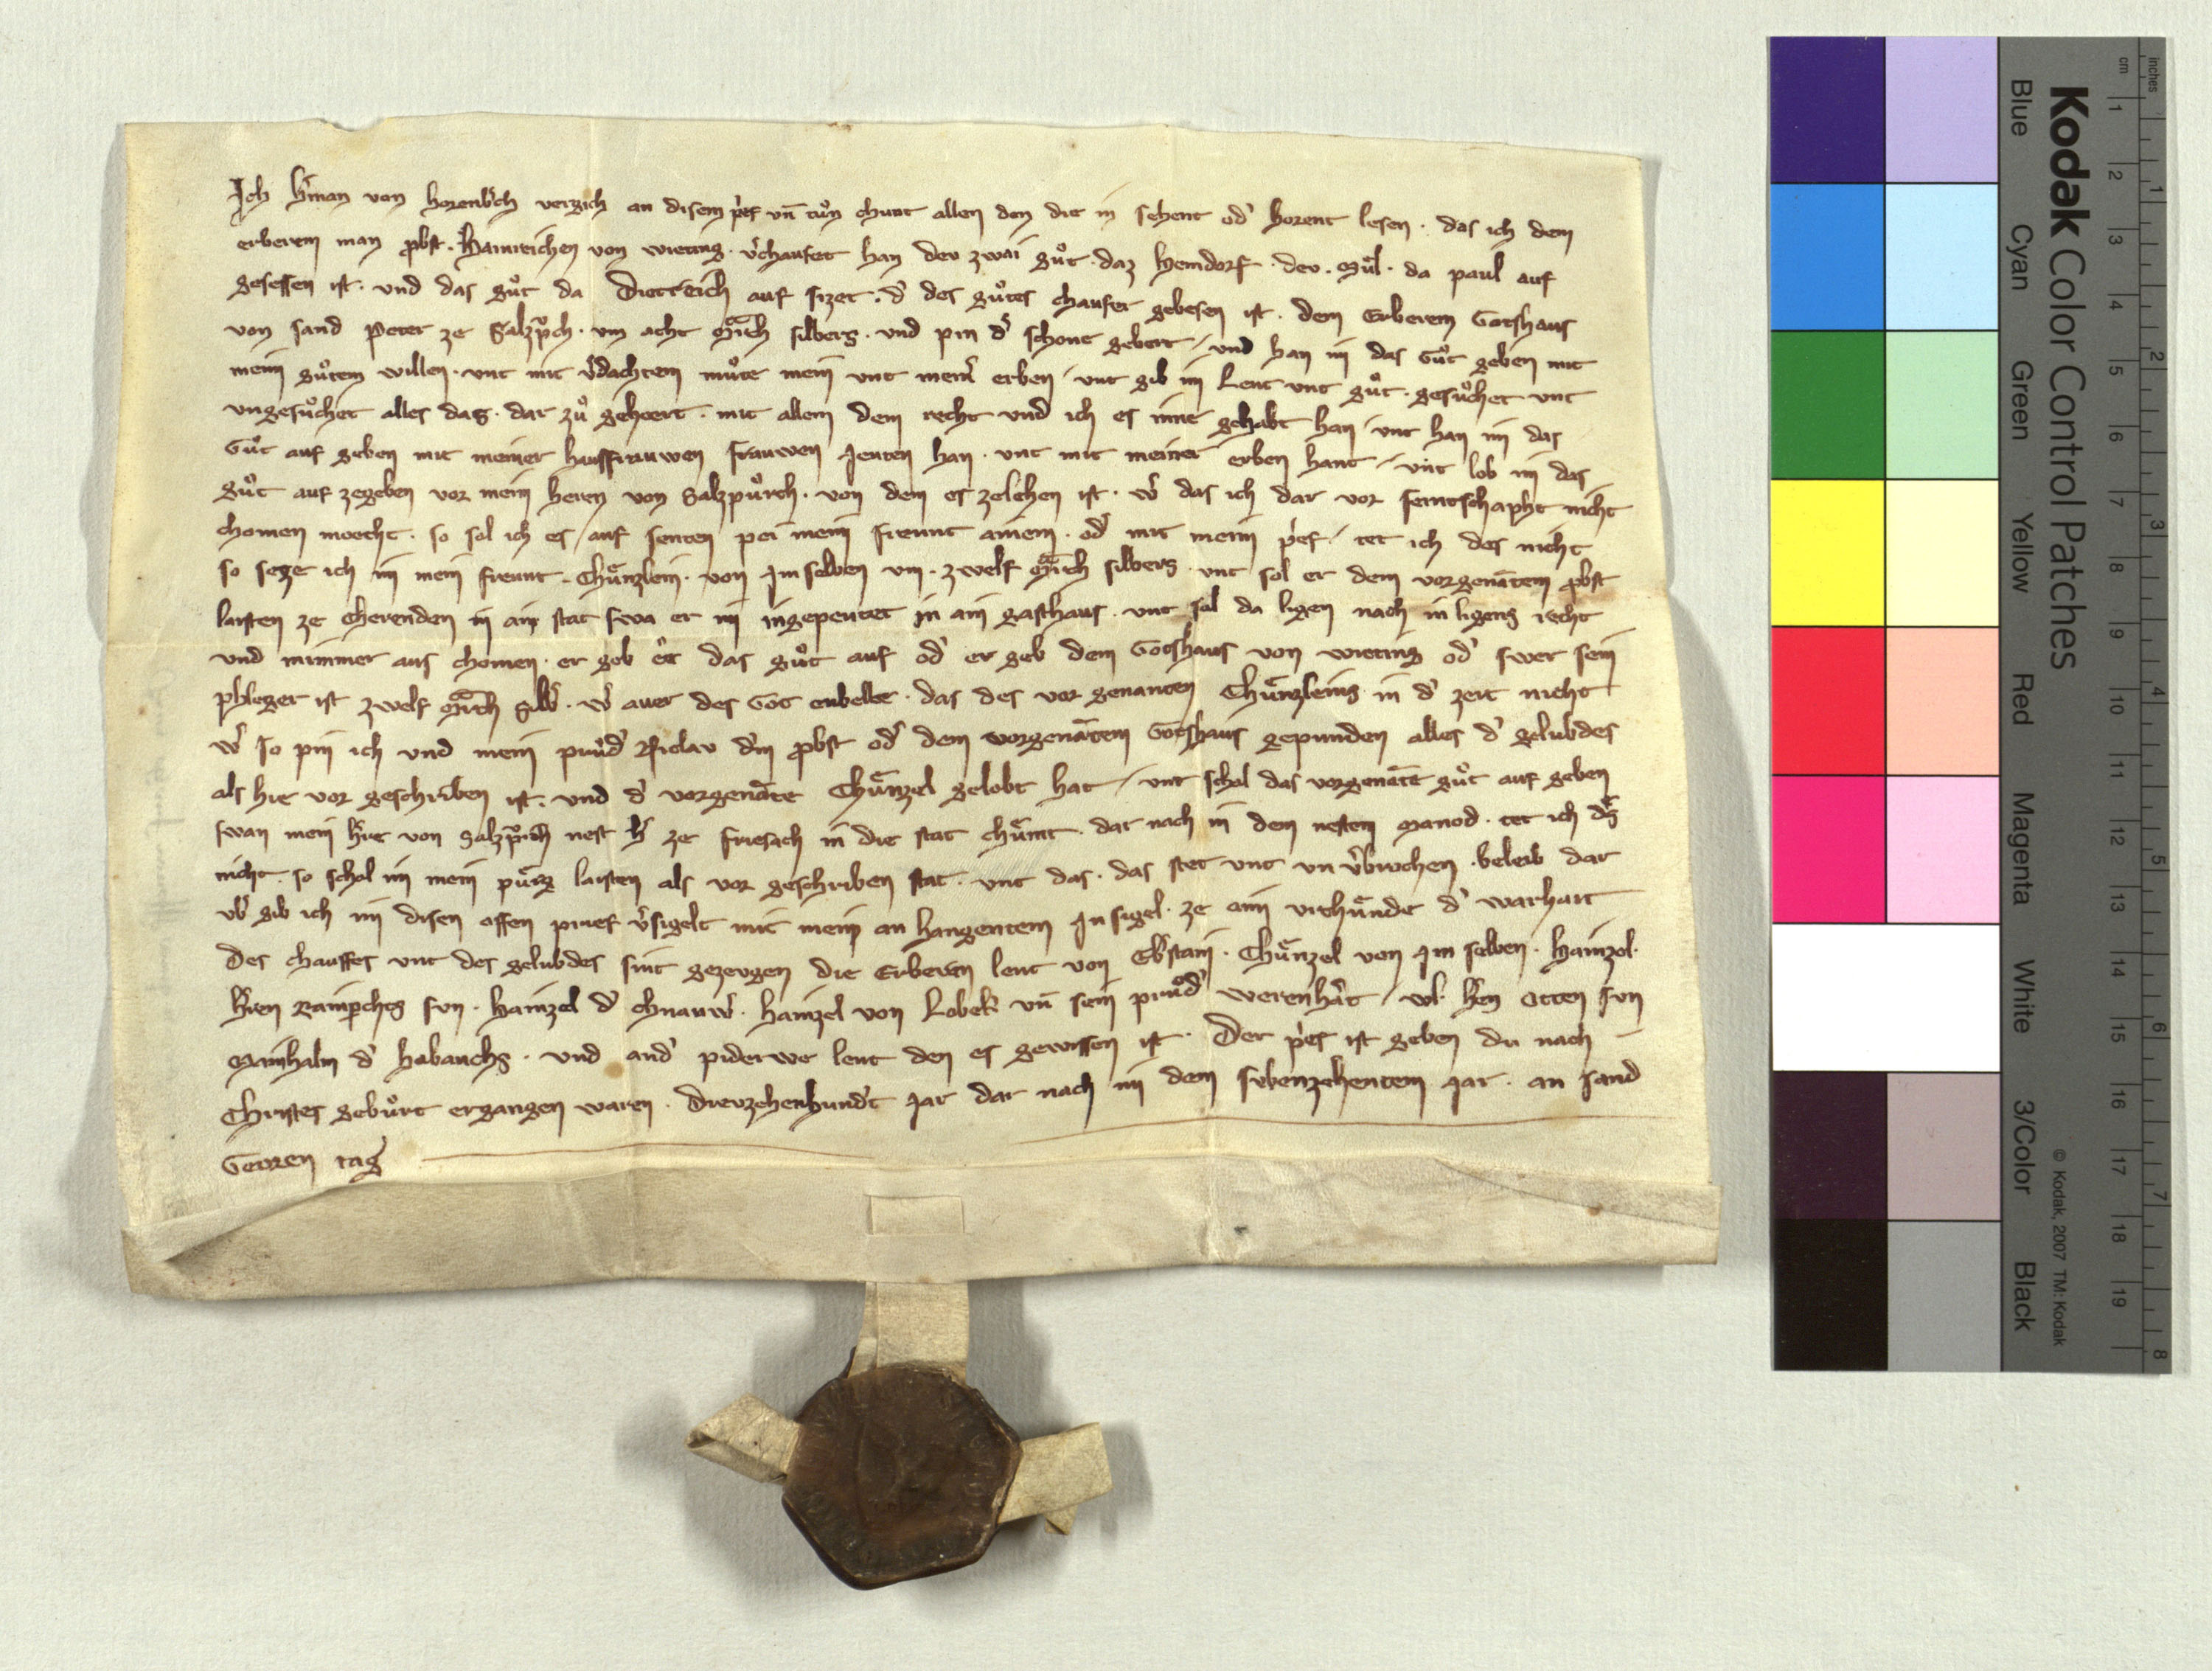 Ich h̉man von horenb̉ch vergich an disem p̉ef vn̄ tůn chunt allen den die in sehent od̉ horent lesen · das ich dem
erberem man p̉bst · Hainreichen von wieting · v̉chaufet han dev zwai gůt · daz hemdorf · dev · Mul · da paul auf
gesessen ist · und das gůt da Dietreich auf sizet · d̉ des gůtes chaufer gebesen ist · dem Erberem Gotshaus
von sand Peter ze Salzp̉ch · vm acht march silbers · und pin d̉ schone gebert / und han im das Gůt geben mit
mein gůtem willen · vnt mit v̉dachtem můte mein vnt mein̉ erben / vnt gib im Leut vnt gůt · gesůchet vnt
vngesůchet alles das · dar zů gehoert · mit allem dem recht und ich es inne gehabt han / vnt han im das
Gůt auf geben mit meiner hausfrauwen frauwen Jeuten han · vnt mit meiner erben hant / vnt lob im das
gůt auf zegeben vor mein heren von Salzpůrch · von dem es zelehen ist · w̉ das ich dar vor feintschapht nicht
chomen moecht · so sol ich es / auf senten pei mein freunt ainem · od̉ mit mein p̉ef / tet ich des nicht
so seze ich im mein freunt · Chůnzlein · von Jmselben vm · zwelf march silbers · vnt sol er dem vorgenātem p̉bst
laisten ze Cherenden in ain stat swa er im ingepeutet in ain gasthaus · vnt sol da ligen nach in ligens recht
und nimmer aus chomen · er geb ee das gůt auf od̉ er geb dem Gotshaus von wieting od̉ swer sein
phleger ist zwelf march Silb̉ · w̉ auer des Got enbelle · das des vor genanten Chůnzleins in d̉ zeit nicht
w̉ so pin ich und mein průd̉ Nicla v dem p̉bst od̉ dem vorgenātem Gotshaus gepunden alles d̉ gelubdes
als hie vor geschriben ist · und d̉ vorgenāte Chůnzel gelobt hat / vnt schol das vorgenāte gůt auf geben
swan mein h̉re von Salzp̉rch nest h̉ ze friesach in die stat chůmt · dar nach in dem nesten Manod · tet ich des
nicht · so schol im mein půrg laisten als vor geschriben stat · vnt das · das stet vnt vn v̉brochen · beleib dar
vb̉ gib ich im disen offen prief v̉sigelt mit mein an hangentem Jnsigel · ze aim vrchůnde d̉ warhait
Des chauffes vnt des gelubdes sint gezevgen die Erberen leut von Eb̉stain · Chůnzel von Jm selben · Hainzel ·
h̉ren Raimp̉chts sun · Hainzel d̉ chnauw̉ · hainzel von Lobek vn̄ sein průd̉ werenh̉t / vl · h̉ren Otten sun
Mainhalm d̉ habanchs · und and̉ piderwe leut den es gewissen ist · Der p̉ef ist geben du nach
Christes gebůrt ergangen waren · Drevzehenhund̉t Jar dar nach in dem sibenzehentem Jar · an sand
Gevren tag
Kodak Color Control Patches
Blue Cyan Green Yellow Red Magenta White 3/Color Black
© Kodak, 2007 TM: Kodak
inches
cm
1 2 3 4 5 6 7 8
1 2 3 4 5 6 7 8 9 10 11 12 13 14 15 16 17 18 19